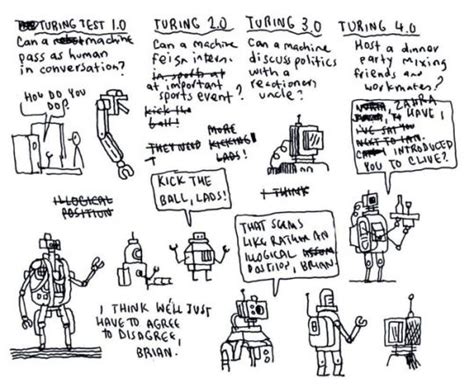 TURING TEST 1.0
Can a machine
pass as human
in conversation?
HOW DO YOU
DO?
TURING 2.0
Can a machine
feign intern.
in sports at
at important
sports event?
kick the
ball!
THEY NEED MORE
KICKING
LADS!
KICK THE
BALL, LADS!
TURING 3.0
Can a machine
discuss politics
with a
reactionery
uncle?
I THINK
THAT SEEMS
LIKE RATHER AN
ILLOGICAL
POSITION, BRIAN
TURING 4.0
Host a dinner
party mixing
friends and
workmates?
ZAHRA
HAVE I
I'VE SAT
NEXT TO IAN.
INTRODUCED
YOU TO CLIVE?
ILLOGICAL
POSITION
I THINK WE'LL JUST
HAVE TO AGREE
TO DISAGREE,
BRIAN.